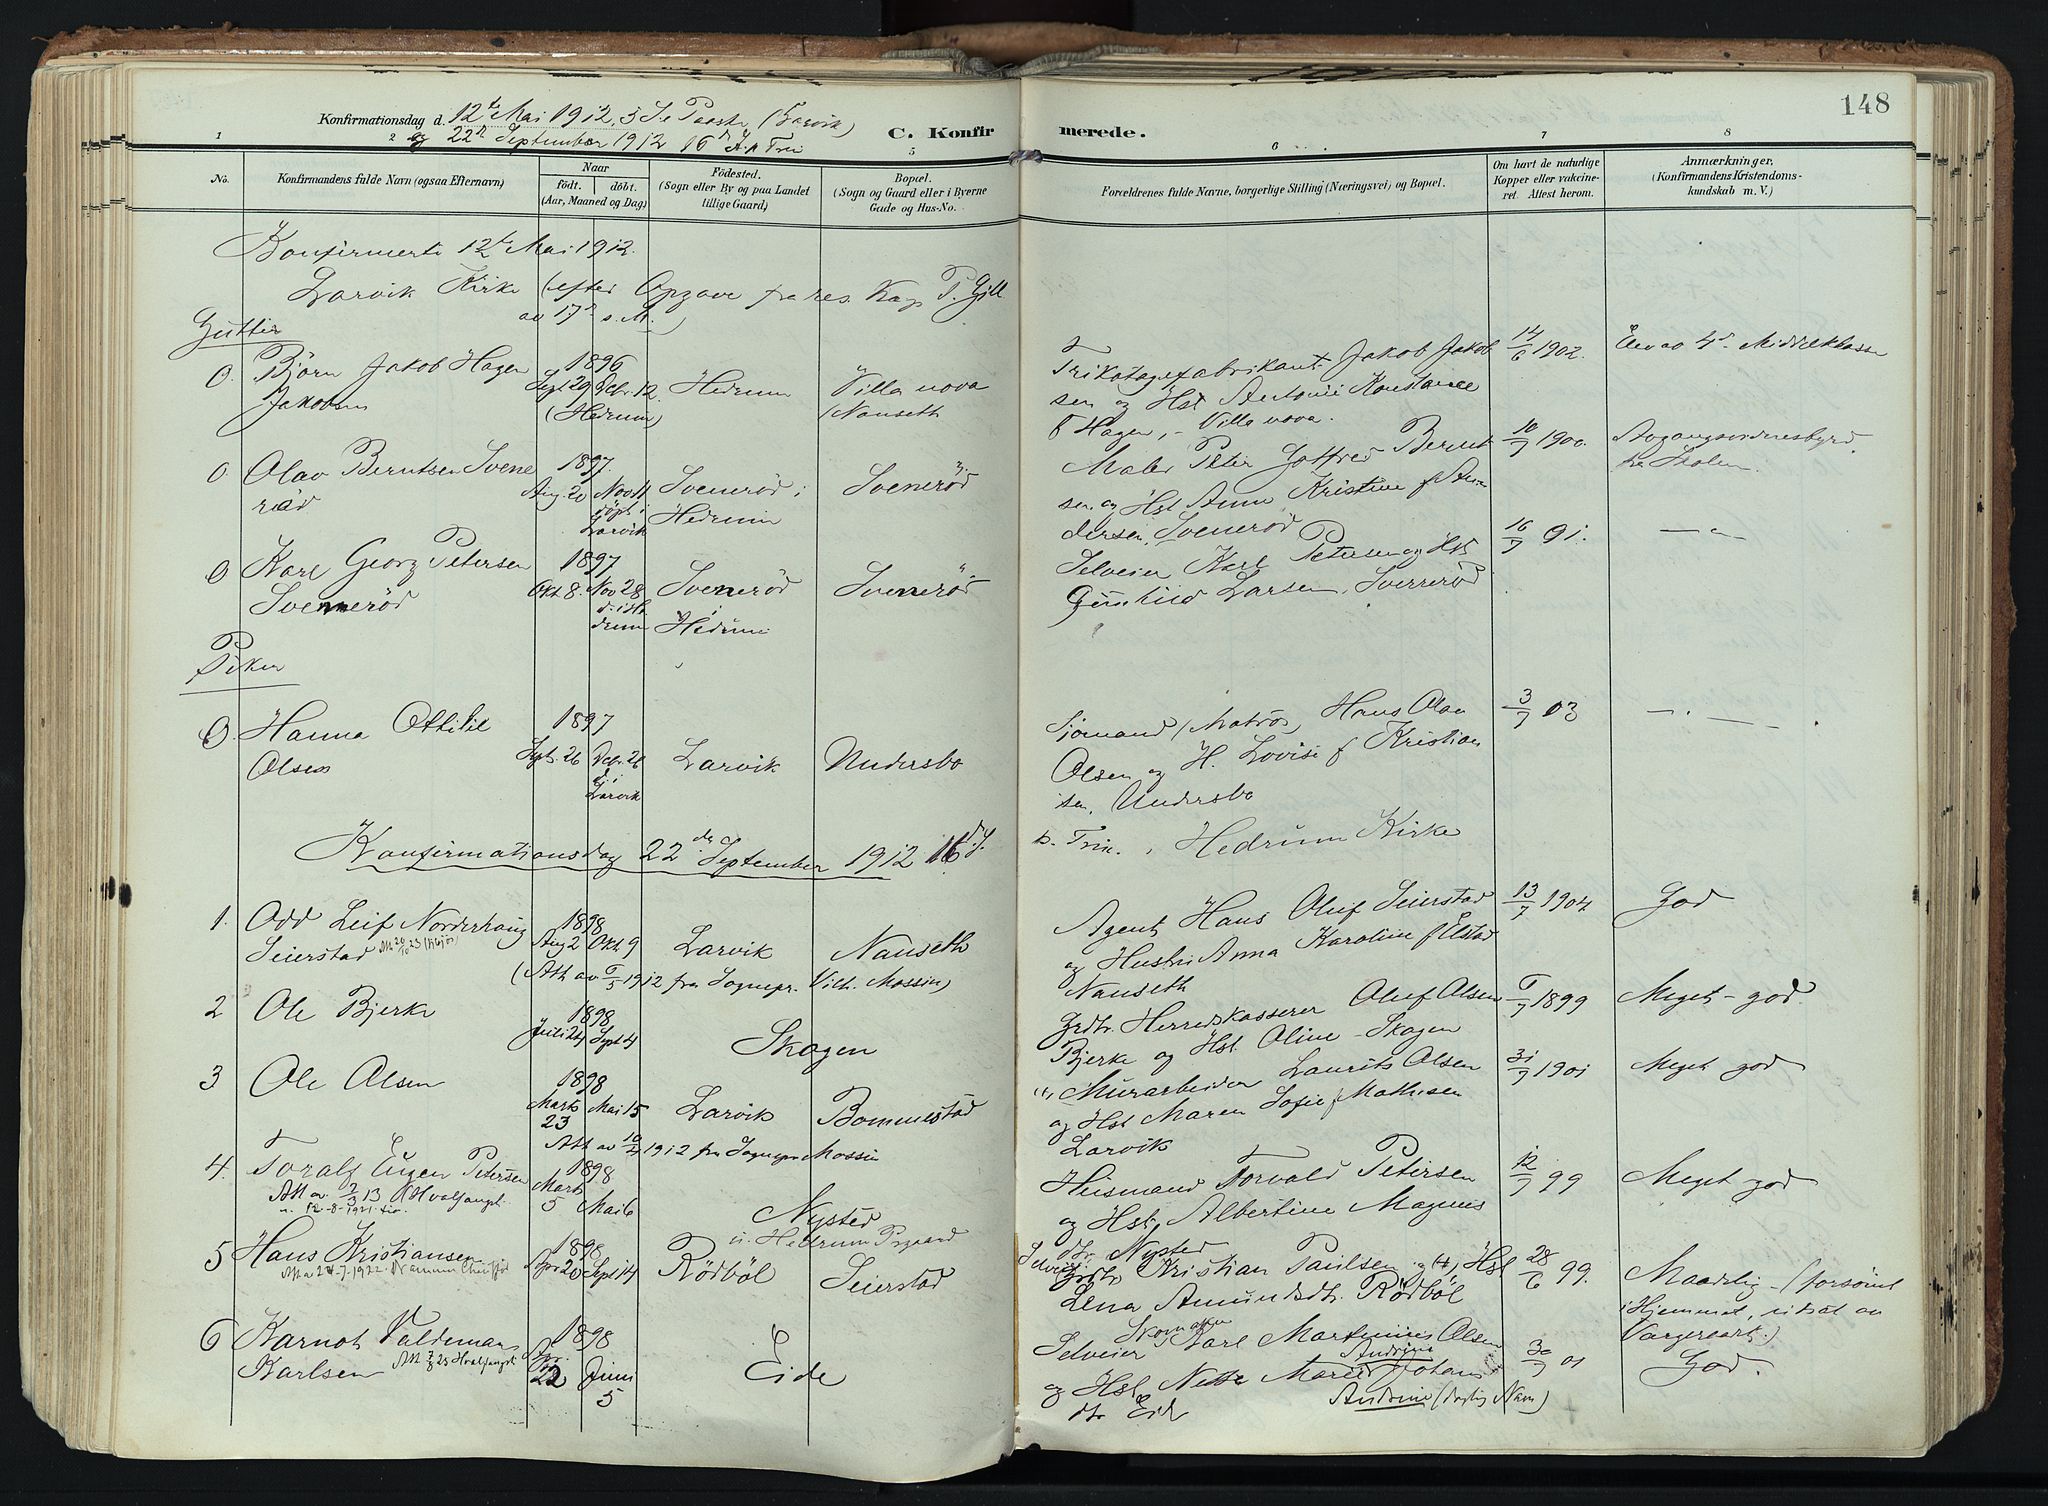 148
Konfirmationsdag d. 12te Mai 1912, 3 S. e. Paaske (Larvik)
og 22de September 1912 16de S. e. Trin
C. Konfirmerede.
1 2 5 6 7 8
No.
Konfirmandens fulde Navn (ogsaa Efternavn)
Naar
födt. döbt.
(Aar, Maaned og Dag)
Födested.
(Sogn eller By og paa Landet
tillige Gaard)
Bopæl.
(Sogn og Gaard eller i Byerne
Gade og Hus-No.
Forældrenes fulde Navne, borgerlige Stilling (Næringsvei) og Bopæl.
Om havt de naturlige
Kopper eller vakcine-
ret. Attest herom.
Anmærkninger.
(Konfirmandens Kristendoms-
kundskab m. V.)
Konfirmerte 12te Mai 1912.
Larvik Kirke (efter Opgave fra res. Kap. P. Gill
av 17de s. M.)
Gutter
0. Björn Jakob Hagen
Jakobsen
1896
Sept. 29 Decbr. 12
(Hedrum)
Hedrum
Villa nova
(Nanseth
Trikotagefabrikant Jakob Jakob
sen og Hst Antonie Konstance
f Hagen, - Villa nova.
14/6 1902.
Elev av 4de Middelklasse
0 Olav Berntsen Svene
röd
1897.
Aug. 20 Nov 14
döpt i
Larvik
Svenerød i
Hedrum
Svenerød
Maler Peter Gotfred Bernt
sen og Hst Anna Kristine f An
dersen, Svenerød
10/7 1900.
Avgangsvidnesbyrd
fra Skolen
0 Karl Georg Petersen
Svennerød
1897
Okt 8. Nov 28
d. i He
drum
Svenerød
i
Hedrum
Svenerød
Selveier Karl Petersen og Hst
Gunhild Larsen, Svenerød
16/7 01.
— " —
Piker
0. Hanna Ottilie
Olsen
1897
Sept. 26 Decbr. 26
i
Larvik
Larvik
Undersbo
Sjömand (Matros) Hans Olav
Olsen og H. Lovise f Kristian
sen, Undersbo
3/7 03
— " —
Konfirmationsdag 22de September 1912 16de S.
e. Trin. i Hedrum Kirke
1. Odd Leif Norderhaug
Seierstad Att 20/10 23
1898
Aug 2 Okt 9
Larvik
Nanseth
(Att. av 5/5 1912 fra Sognepr. Vilh. Mossin)
Agent Hans Oluf Seierstad
og Hustru Anna Karoline f Elstad
Nanseth
13/7 1904
God
2 Ole Bjerke
1898
Juli 24 Sept 4
Skogen
Grdbr. Herredskasserer Oluf Olsen
Bjerke og Hst Oline - Skogen
5/7 1899
Meget - god.
3 Ole Olsen
1898
Marts Mai 15
23
Larvik
Bommestad
Att av 10/4 1912 fra Sognepr Mossin
Murarbeider Laurits Olsen
og Hst Maren Sofie f Mathisen
Larvik
31/7 1901
Meget god
4. Toralf Eugen Petersen
Att av. 2/3 13 (Hvalfangst.
u. 12-8-1921.
1898
Marts
5 Mai 6
Nysted
u. Hedrum Prgaard
Husmand Torvald Petersen
og Hst, Albertine Magnus
dtr Nysted
12/7 99
Meget god
5 Hans Kristiansen
Att a 24-7-1922.
1898
Apr 20 Sept 4
Rödböl
Seierstad
Selveier
Grdbr Kristian Paulsen og (+) Hst
Lena Amundsdtr. Rödböl
28/6 99.
Maadelig - (forsömt
i Hjemmet, utsat av
Vergeraat.)
6 Karnot Valdemar
Karlsen Att 7/8 25 Hvalfangst
1898
Apr.
22 Juni
5
Eide
Skomaker
Selveier Karl Martinius Olsen
Andrine
og Hst Nette Marie Johans
dtr Eide
Andrine (daglig Navn)
30/7 01
God.